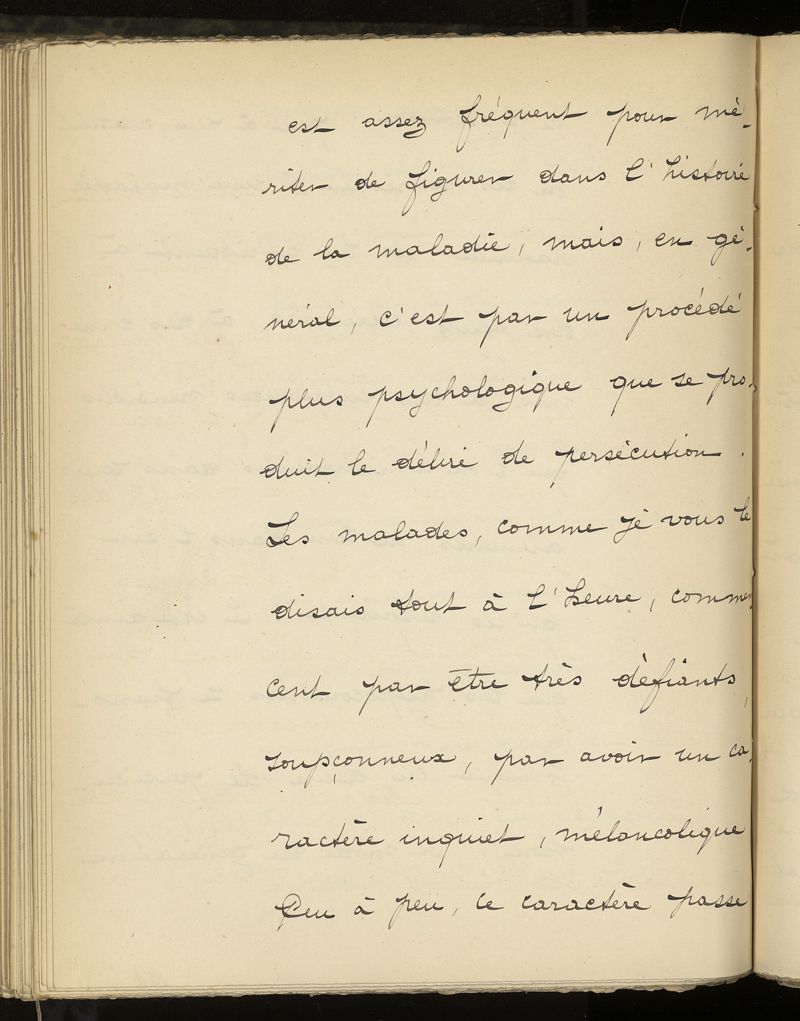 est assez fréquent pour mé-
riter de figurer dans l'histoire
de la maladie, mais, en gé-
néral, c'est par un procédé
plus psychologique que se pro-
duit le délire de persécution.
Les malades, comme je vous le
disais tout à l'heure, commen
cent par être très défiants,
soupçonneux, par avoir un ca-
ractère inquiet, mélancolique
Peu à peu, ce caractère passe